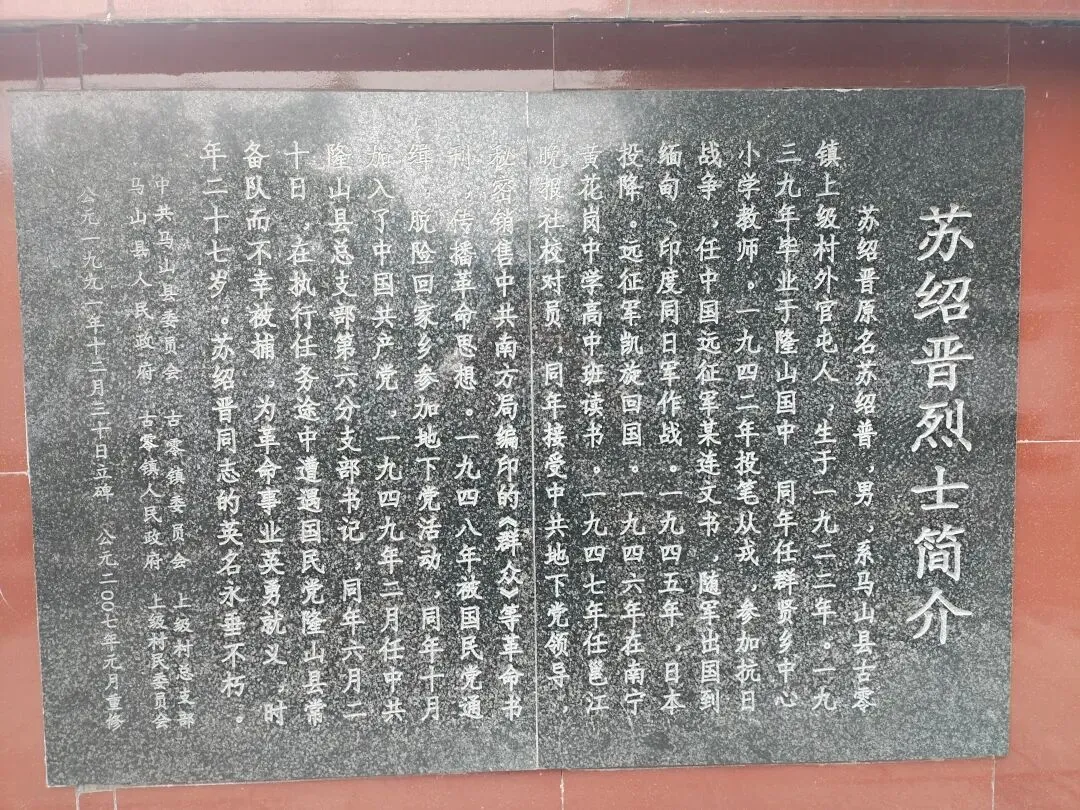 苏绍晋烈士简介
苏绍晋原名苏绍普，男，系马山县古零
镇上级村外官屯人，生于一九二三年。一九
三九年毕业于隆山国中，同年任群贤乡中心
小学教师。一九四二年投笔从戎，参加抗日
战争，任中国远征军某连文书，随军出国到
缅甸、印度同日军作战。一九四五年，日本
投降。远征军凯旋回国。一九四六年在南宁
黄花岗中学高中班读书。一九四七年任邕江
晚报社校对员，同年接受中共地下党领导，
秘密销售中共南方局编印的《群众》等革命书
刊，传播革命思想。一九四八年被国民党通
缉，脱险回家乡参加地下党活动，同年十月
加入了中国共产党，一九四九年二月任中共
隆山县总支部第六分支部书记，同年六月二
十日，在执行任务途中遭遇国民党隆山县常
备队而不幸被捕，为革命事业英勇就义，时
年二十七岁。苏绍晋同志的英名永垂不朽。
中共马山县委员会 古零镇委员会 上级村总支部
马山县人民政府 古零镇人民政府 上级村民委员会
公元一九九一年十二月三十日立碑 公元二00七年元月重修